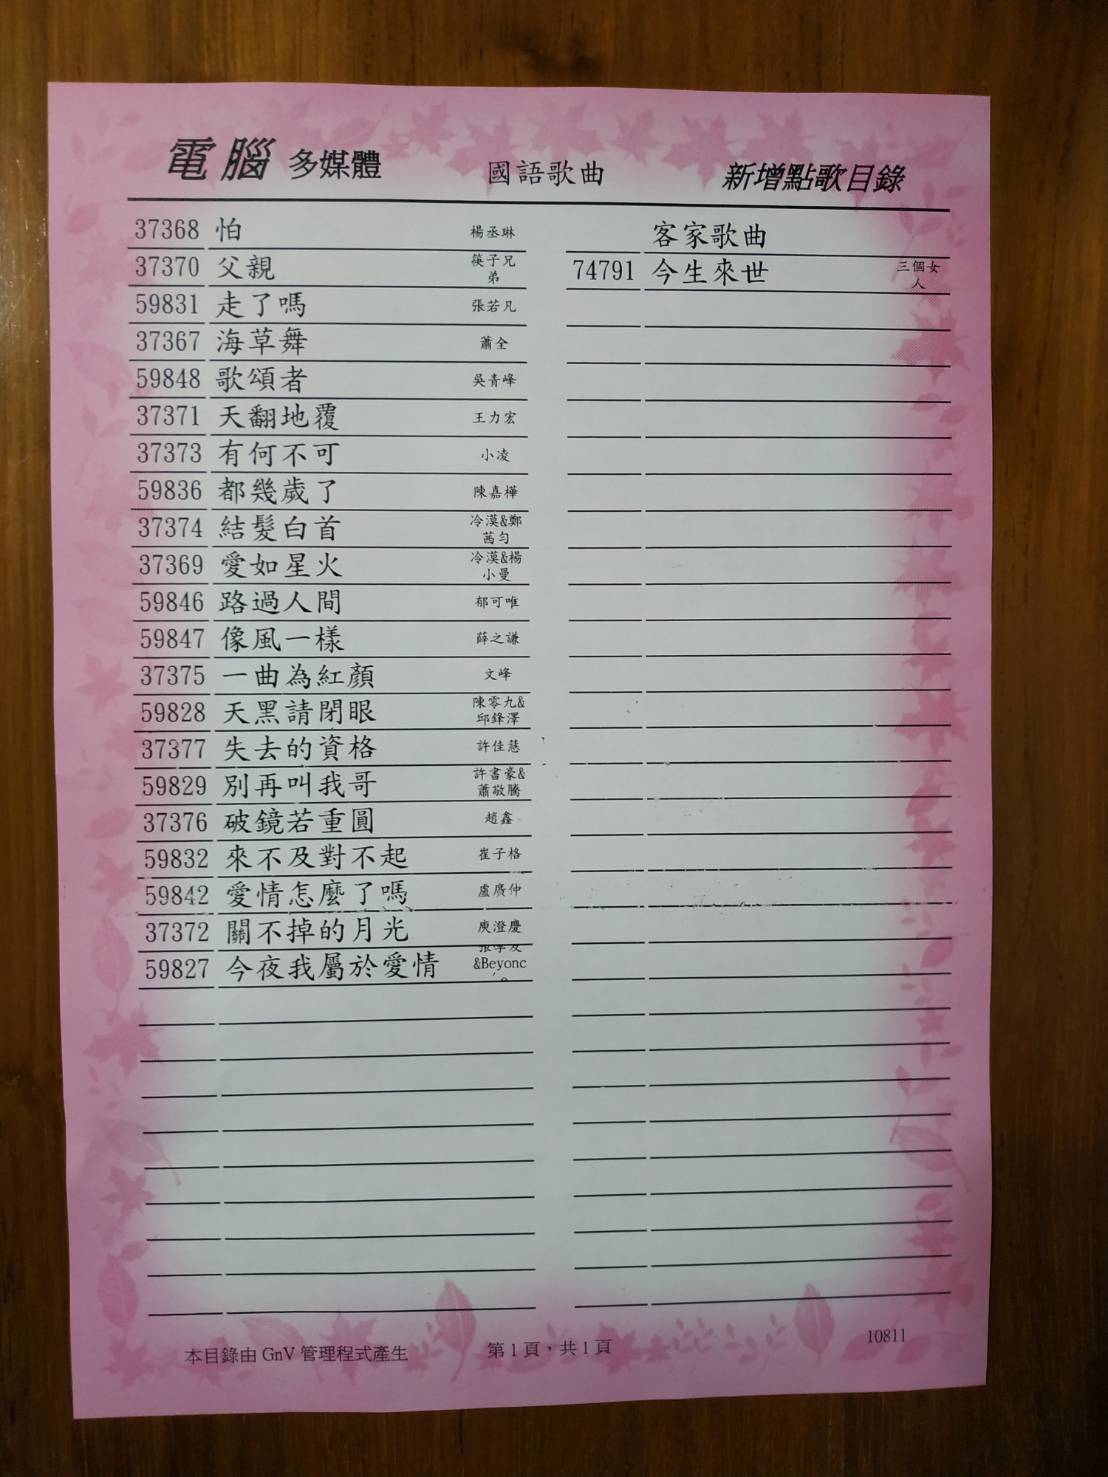 電腦 多媒體 國語歌曲 新增點歌目錄
37368 怕 楊丞琳
37370 父親 筷子兄弟
59831 走了嗎 張若凡
37367 海草舞 蕭全
59848 歌頌者 吳青峰
37371 天翻地覆 王力宏
37373 有何不可 小凌
59836 都幾歲了 陳嘉樺
37374 結髮白首 冷漠&鄭茜勻
37369 愛如星火 冷漠&楊小曼
59846 路過人間 郁可唯
59847 像風一樣 薛之謙
37375 一曲為紅顏 文峰
59828 天黑請閉眼 陳零九&邱鋒澤
37377 失去的資格 許佳慧
59829 別再叫我哥 許書豪&蕭敬騰
37376 破鏡若重圓 趙鑫
59832 來不及對不起 崔子格
59842 愛情怎麼了嗎 盧廣仲
37372 關不掉的月光 庾澄慶
59827 今夜我屬於愛情 &Beyonc
客家歌曲
74791 今生來世 三個女人
本目錄由 GnV 管理程式產生 第1頁，共1頁 10811